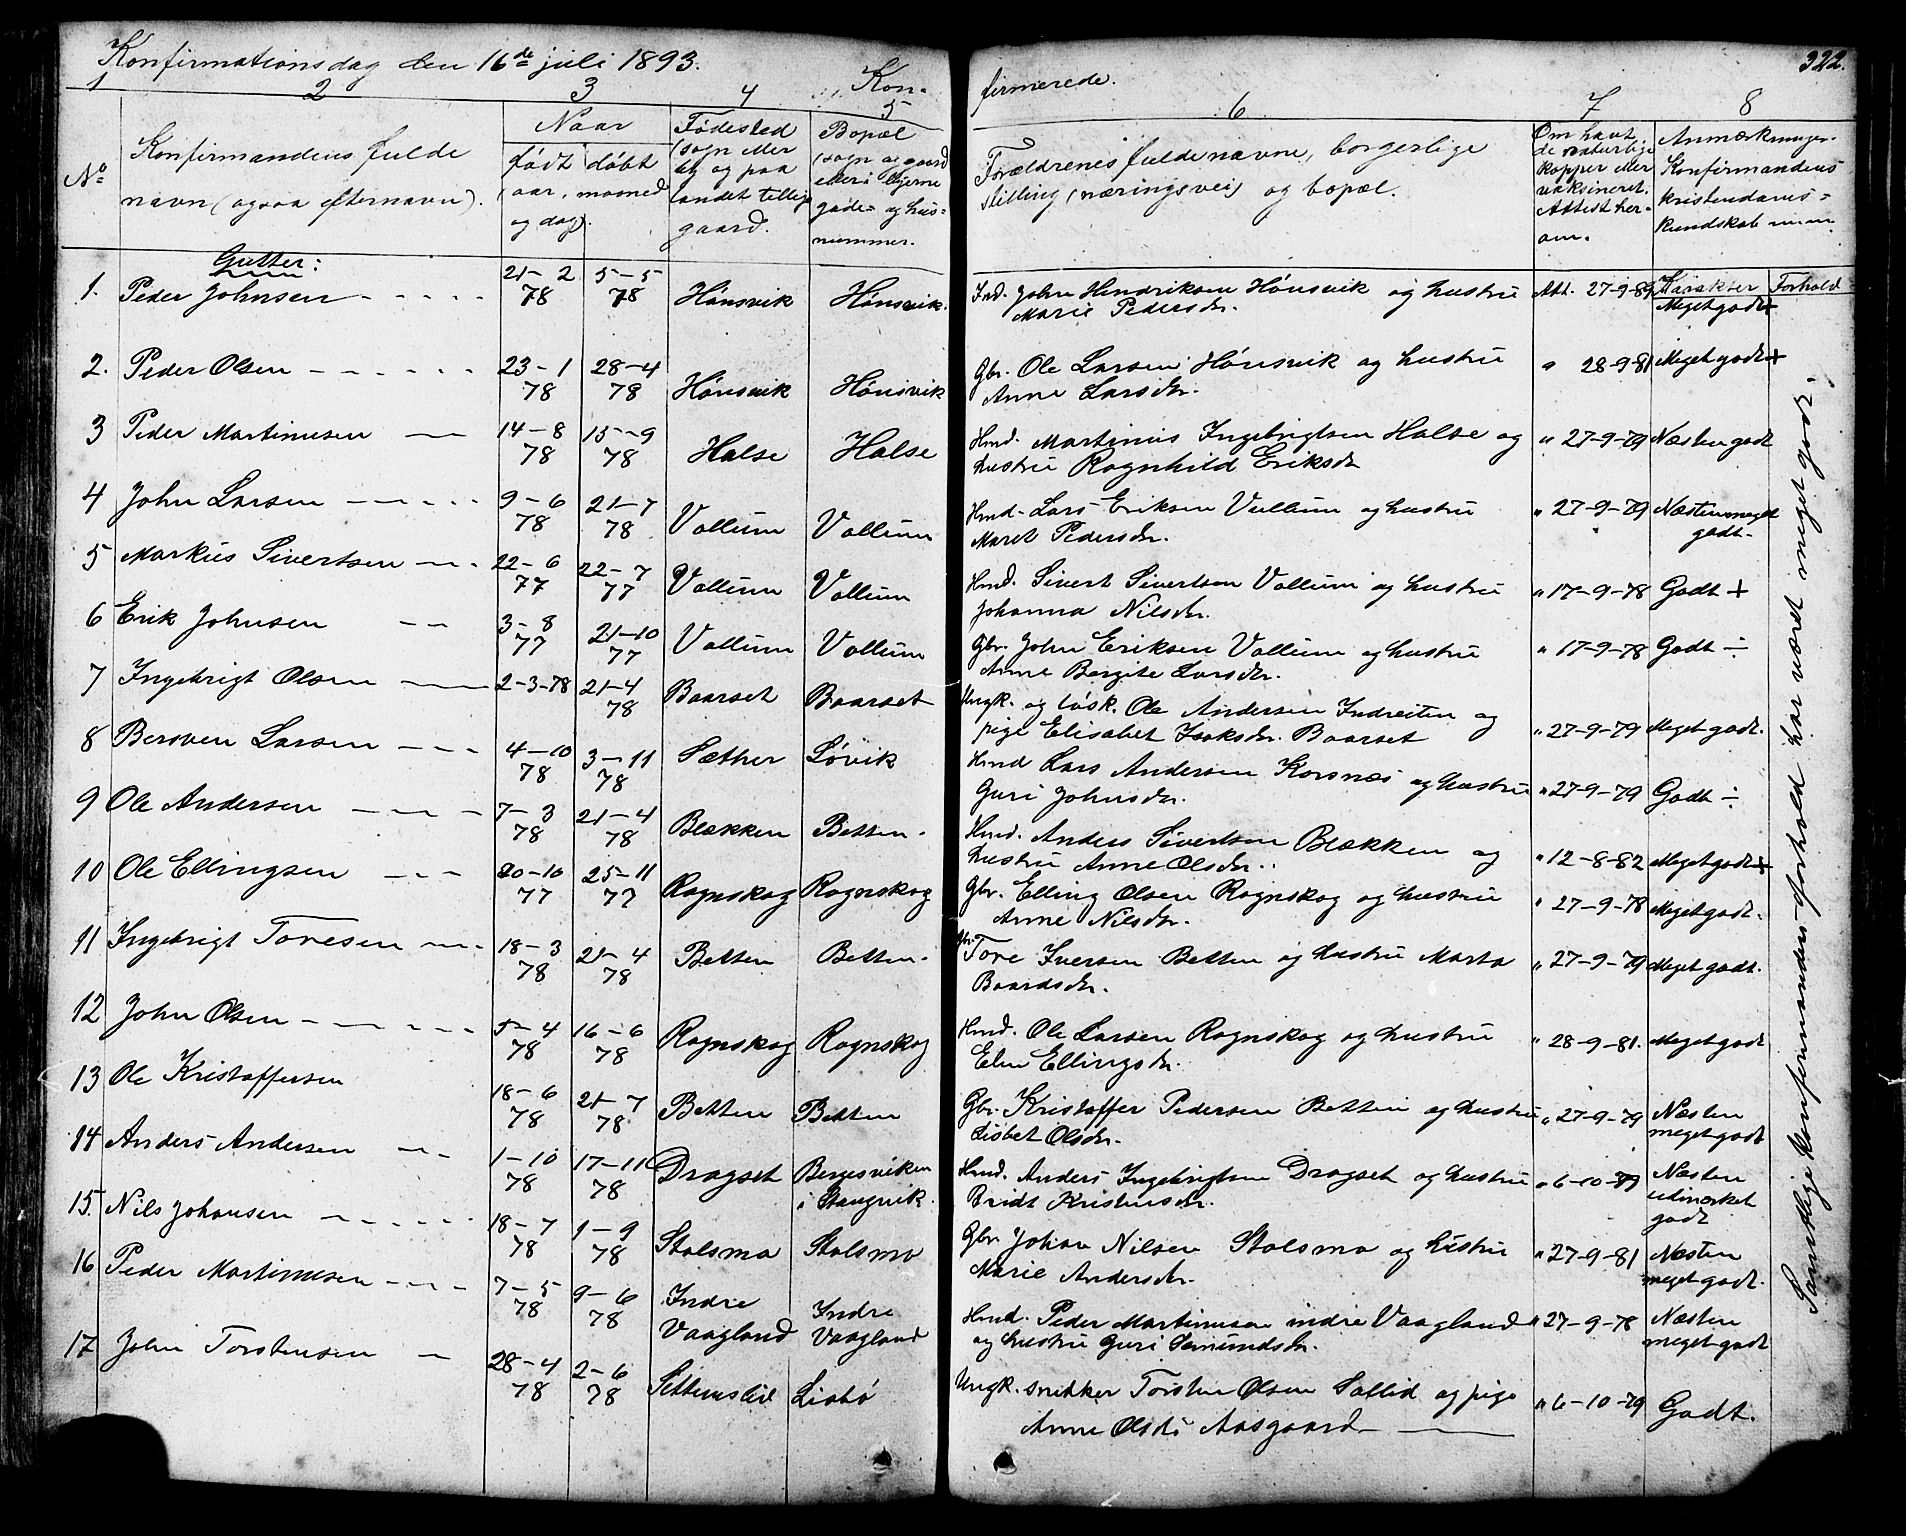 Konfirmationsdag den 16de juli 1893.
Kon-
firmerede.
322.
1 2 3 4 5 6 7 8
No
Konfirmandens fulde
navn (ogsaa efternavn).
Naar
født døbt
(aar, maaned
og dag).
Fødested
(sogn eller
by og paa
landet tillige
gaard.
Bopæl
(sogn og gaard
eller i byerne
gade- og hus-
nummer.
Forældrenes fulde navne, borgerlige
stilling (næringsvei) og bopæl.
Om havt
de naturlige
kopper eller
vaksineret.
Attest her-
om.
Anmærkninger.
Konfirmandens
kristendoms-
kundskab m.m.
Karakter Forhold
Gutter:
1. Peder Johnsen 21-2 78 5-5 78 Hönsvik Hönsvik. Ind. John Hendriksen Hönsvik og hustru Att. 27-9-89 Meget godt+
Marie Pedersdr.
2. Peder Olsen 23-1 78 28-4 78 Hönsvik Hönsvik Gbr. Ole Larsen Hönsvik og hustru " 28-9-81 Meget godt+
Anne Larsdr.
3 Peder Martinusen 14-8 78 15-9 78 Halse Halse Hmd. Martinus Ingebrigtsen Halse og " 27-9-79 Næsten godt
hustru Ragnhild Eriksdr
4 John Larsen 9-6 78 21-7 78 Vollum Vollum Hmd. Lars Eriksen Vullum og hustru " 27-9-79 Næsten meget
Maret Pedersdr. godt.
5 Markus Sivertsen 22-6 77 22-7 77 Vollum Vollum Hmd. Sivert Sivertsen Vollum og hustru " 17-9-78 Godt +
Johanna Nilsdr.
6 Erik Johnsen 3-8 77 21-10 77 Vollum Vollum Gbr. John Eriksen Vollum og hustru " 17-9-78 Godt ÷
Anne Bergite Larsdr.
7 Ingebrigt Olsen 2-3-78 21-4 78 Baarset Baarset Ungk. og løsk. Ole Andersen Indreiten og " 27-9-79 Meget godt.
pige Elisabet Isaksdr. Baarset
8 Beroven Larsen 4-10 78 3-11 78 Sæther Løvik Hmd Lars Andersen Korsnæs og hustru " 27-9-79 Godt ÷
Guri Johnsdr.
9 Ole Andersen 7-3 78 21-4 78 Blækken Betten. Hmd. Anders Sivertsen Blækken og " 12-8-82 Meget godt+
hustru Anne Olsdr.
10 Ole Ellingsen 20-10 77 25-11 77 Rognskog Rognskog Gbr. Elling Olsen Rognskog og hustru " 27-9-78 Meget godt.
Anne Nilsdr.
11 Ingebrigt Toresen 18-3 78 21-4 78 Betten Betten. Gbr. Tore Iversen Betten og hustru Marta " 27-9-79 Meget godt.
Baardsdr.
12 John Olsen 5-4 78 16-6 78 Rognskog Rognskog Hmd. Ole Larsen Rognskog og hustru " 28-9-81. Meget godt
Ellingsdr.
13 Ole Kristoffersen 18-6 78 21-7 78 Betten Betten Gbr. Kristoffer Pedersen Betten og hustru " 27-9-79 Næsten
Lisbet Olsdr. meget godt
14 Anders Andersen 1-10 78 17-11 78 Dragset Bergesviken Hmd. Anders Ingebrigtsen Dragset og hustru " 6-10-79 Næsten
i Stangvik. Bridt Kristensdr. udmærket
godt
15. Nils Johansen 18-7 78 1-9 78 Stolsmo Stolsmo Gbr. Johan Nilsen Stolsmo og hustru " 27-9-81 Næsten
Marie Andersdr. meget godt.
16 Peder Martinusen 7-5 78 9-6 78 Indre Indre Hmd. Peder Martinusen indre Vaagland " 27-9-78 Næsten
Vaagland Vaagland og hustru Guri Semundsdr. meget godt
17 John Torstensen 28-4 78 2-6 78 Settemslid Liabø Ungk. snekker Torsten Olsen Sollid og pige " 6-10-79 Godt.
Anne Olsdr Aasgaard
Samtlige konfirmanders forhold har været meget godt.